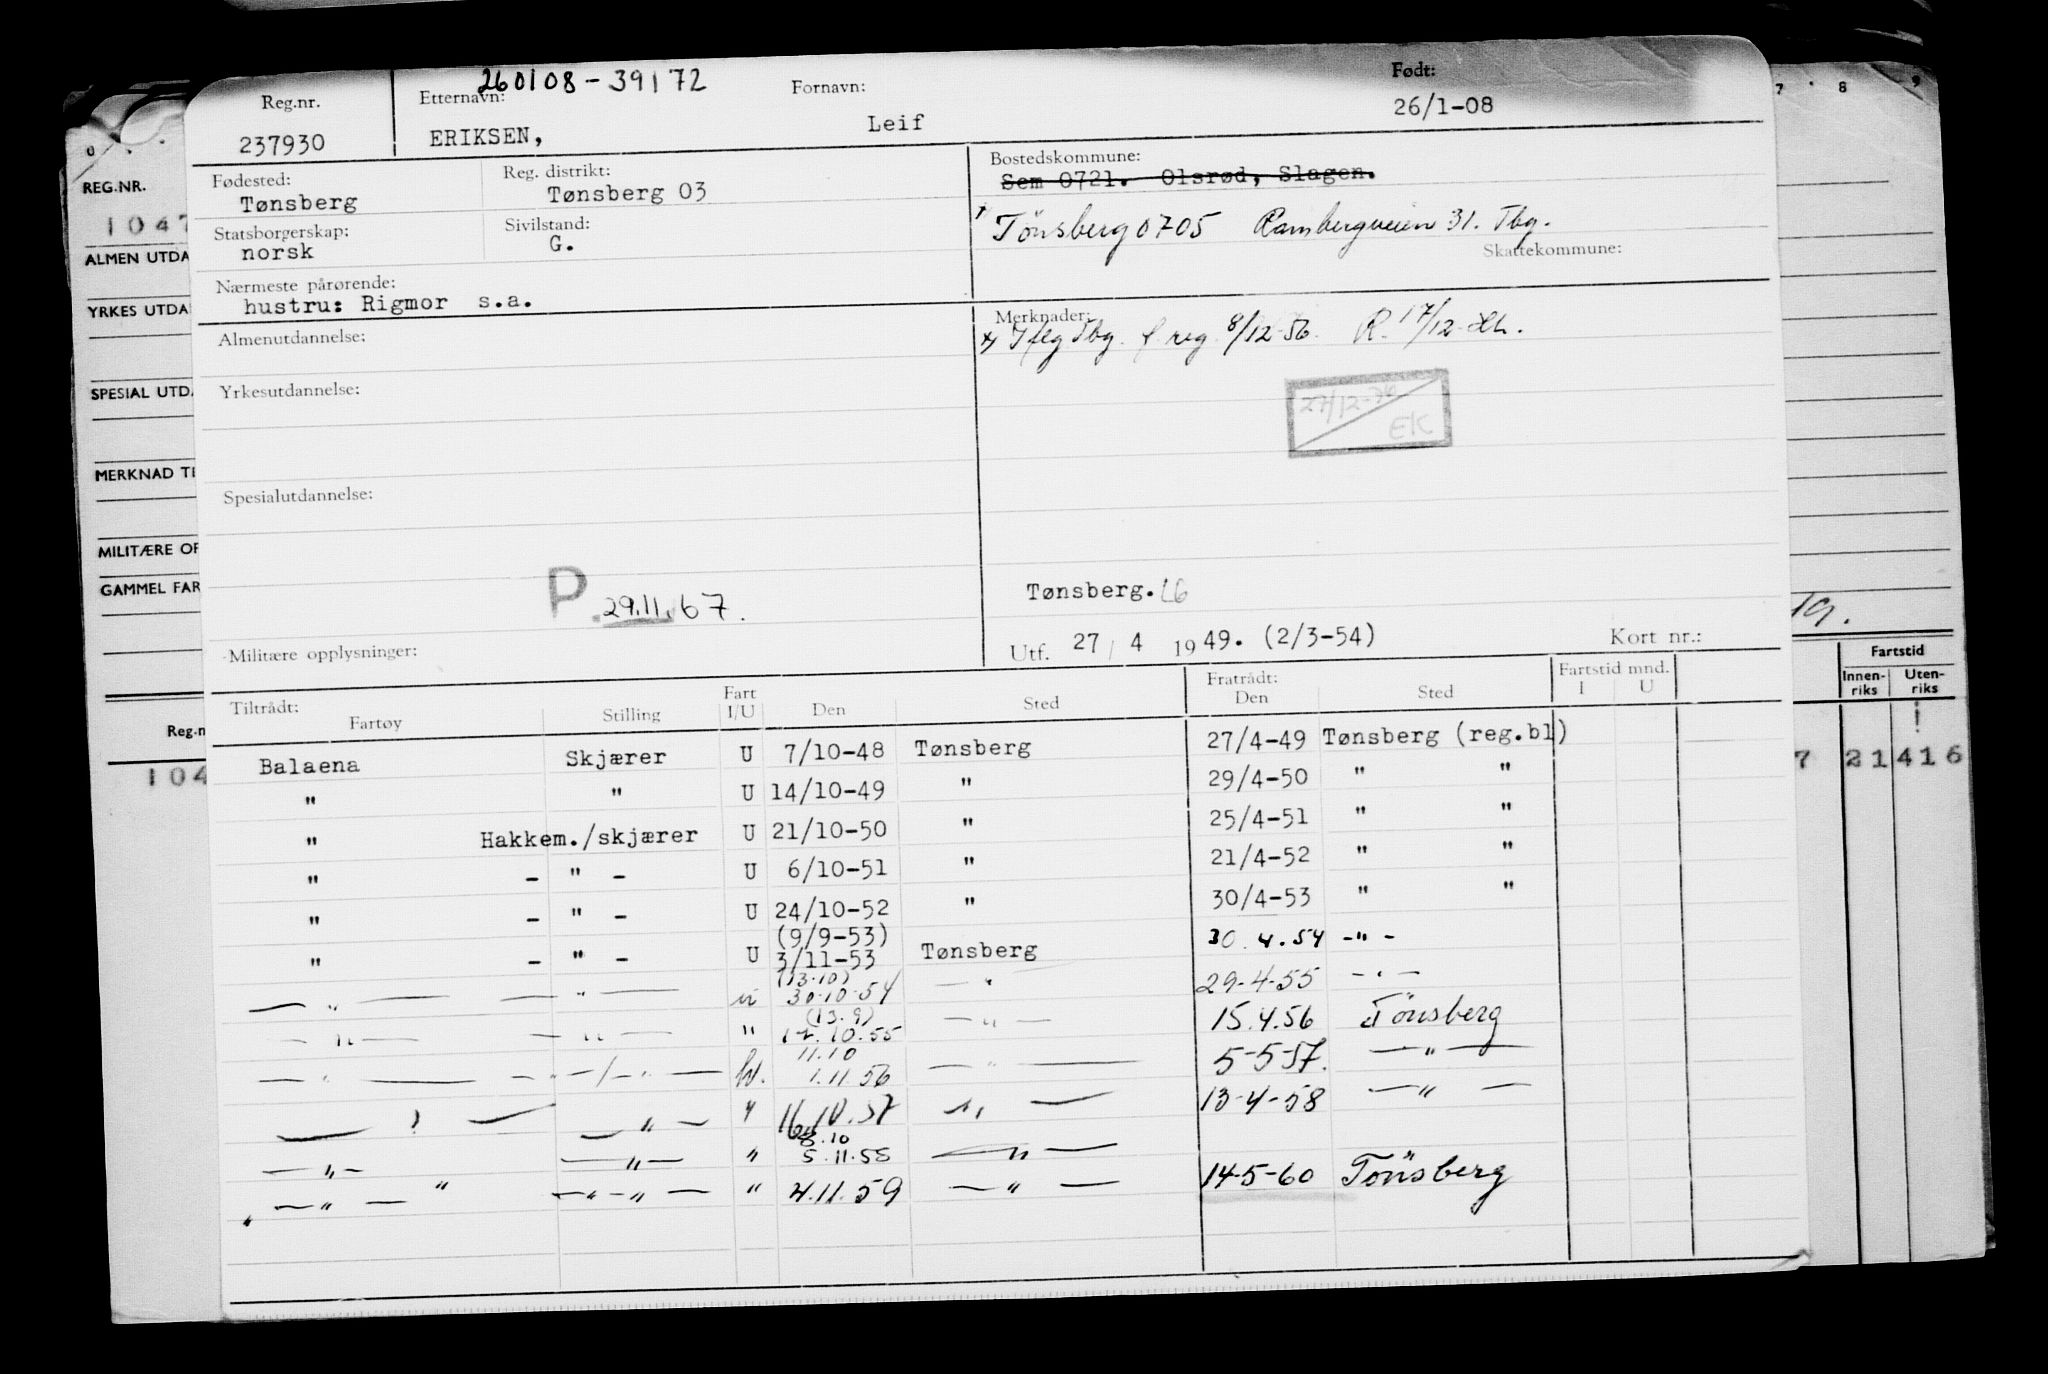 260108-39172
Reg.nr. Etternavn: Fornavn: Født:
237930 ERIKSEN, Leif 26/1-08
Fødested: Reg. distrikt: Bostedskommune:
Tønsberg Tønsberg 03 Sem 0721. Olsrød, Slagen.
Statsborgerskap: Sivilstand:
norsk G. Tönsberg 0705 Rambergveien 31. Tbg.
Skattekommune:
Nærmeste pårørende:
hustru: Rigmor s.a.
Merknader:
Iflg Tbg. f. reg. 8/12-56. R. 17/12
Almenutdannelse:
Yrkesutdannelse:
27/12-76
EK
Spesialutdannelse:
P. 29.11.67.
Tønsberg. L6
Utf. 27/4 1949. (2/3-54) Kort nr.:
Militære opplysninger:
Tiltrådt: Fratrådt: Fartstid mnd.
Fartøy Stilling Fart I/U Den Sted Den Sted I U
Balaena Skjærer U 7/10-48 Tønsberg 27/4-49 Tønsberg (reg.bl)
" " U 14/10-49 " 29/4-50 " "
" Hakkem./skjærer U 21/10-50 " 25/4-51 " "
" - " - U 6/10-51 " 21/4-52 " "
" - " - U 24/10-52 " 30/4-53 " "
(9/9-53)
" - " - U 3/11-53 Tønsberg 30.4.54 -"-
(13.10)
— " — — " — 30.10.54 — " 29-4-55 — " —
(13.9)
— " — — " — " 17.10.55 — " — 15.4.56 Tönsberg
11.10
— " — — " — / — " — 1.11.56 — " — 5-5-57. — " —
— " — — " — " 16.10.57 — " — 13-4-58 — " —
8.10
— " — — " — " 5.11.58 — " —
— " — " — " — " — " 4.11.59 — " — 14-5-60 Tönsberg
REG.NR.
1047
ALMEN UTDA
YRKES UTDA
SPESIAL UTDA
MERKNAD TI
MILITÆRE OP
GAMMEL FAR
Reg.n
104
7 8 9
19.
Fartstid
Innen-riks Uten-riks
7 21 416